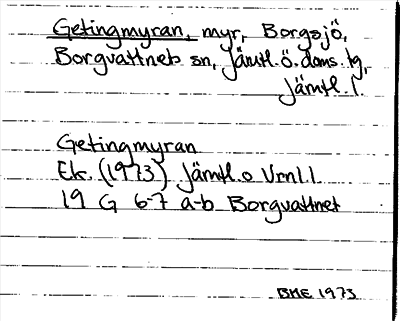 Getingmyran, myr, Borgsjö,
Borgvattnets sn, Jämtl.ö.doms.tg,
Jämtl. l.
Getingmyran
Ek. (1973) Jämtl.o Vrnl l
19 G 6-7 a-b Borgvattnet
BME 1973